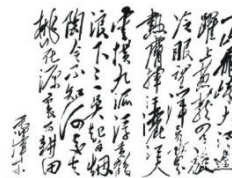 一山飛峙大江邊
躍上葱蘢四百旋
冷眼向洋看世界
熱風吹雨灑江天
雲橫九派浮黃鶴
浪下三吳起白烟
陶令不知何處去
桃花源裏可耕田
毛澤東